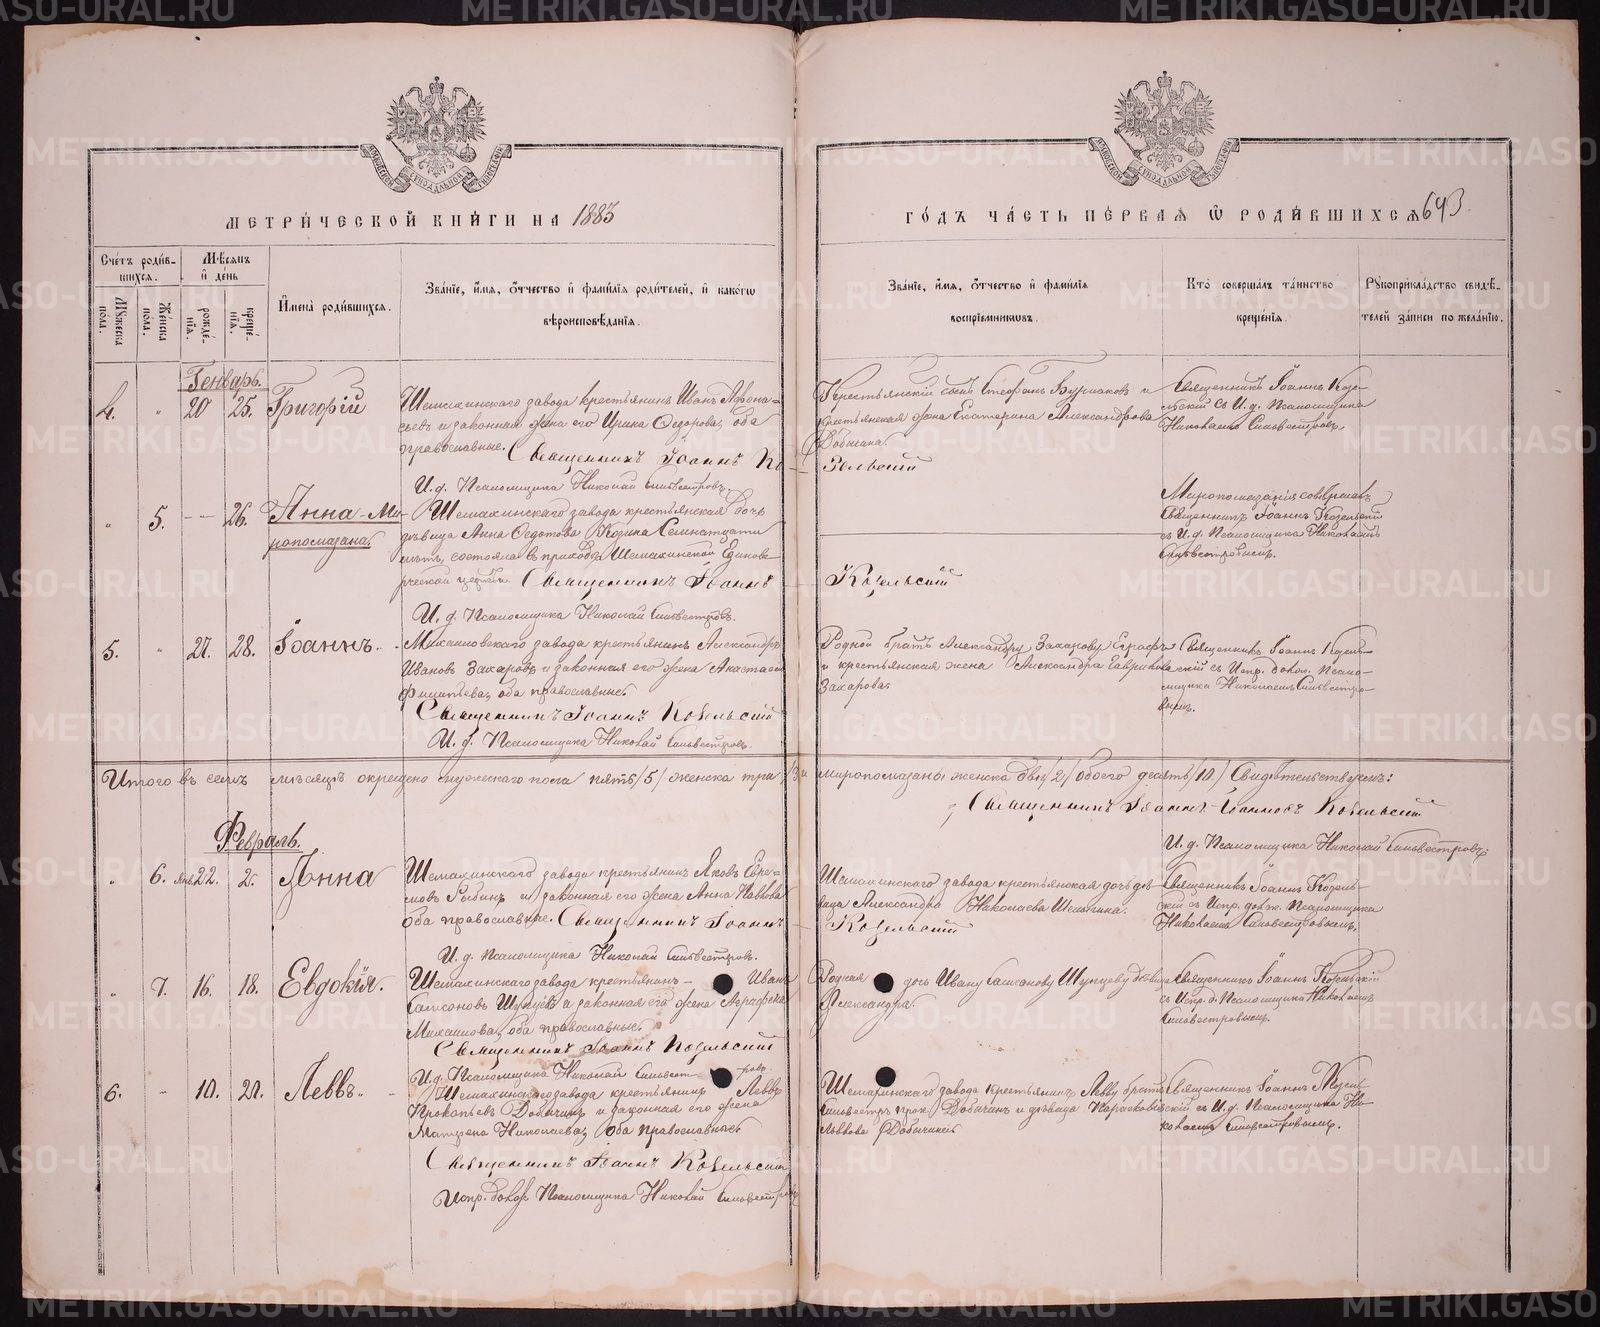 МЕТРИЧЕСКОЙ КНИГИ НА 1883
ГОДЪ ЧАСТЬ ПЕРВАЯ Ѿ РОДИВШИХСЯ 643
Счетъ родив-
шихся.
Мѣсяцъ
и день
Мужеска пола.
Женска пола.
рожде-
нія.
креще-
нія.
Имена родившихся.
Званіе, имя, отчество и фамилія родителей, и какогѡ
вѣроисповѣданія.
Званіе, имя, отчество и фамилія
воспріемниковъ.
Кто совершалъ таинство
крещенія.
Рукоприкладство свидѣ-
телей записи по желанію.
Генварь.
4. " 20 25. Григорій
Шемахинскаго завода крестьянинъ Иванъ Афона-
сьевъ и законная жена его Ирина Федорова, оба
православные. Священникъ Іоаннъ Ко-
зельскій
И. д. Псаломщика Николай Сильвестровъ.
Крестьянскій сынъ Стефанъ и
крестьянская жена Екатерина Александрова
Священникъ Іоаннъ Козе-
льскій съ И. д. Псаломщика
Николаемъ Сильвестров.
" 5. — — 26. Анна - Ми-
ропомазана.
Шемахинскаго завода крестьянская дочь
дѣвица Анна Федотова Семнатцати
лѣтъ, состояла въ приходѣ Шемахинской Единове-
рческой церкви. Священникъ Іоаннъ
Козельскій
И. д. Псаломщика Николай Сильвестровъ.
Миропомазанія совершалъ
Священникъ Іоаннъ Козельскій
съ И. д. Псаломщика Николаемъ
Сильвестровымъ.
5. " 27. 28. Іоаннъ.
Михайловскаго завода крестьянинъ Александръ
Ивановъ Захаровъ и законная его жена Анастасія
оба православные.
Священникъ Іоаннъ Козельскій
И. д. Псаломщика Николай Сильвестровъ.
Родной братъ Александру Захарову Евграфъ
и крестьянская жена Александра Гаврилова
Захарова.
Священникъ Іоаннъ Козель-
скій съ Испр. долж. Псало-
мщика Николаемъ Сильвестро-
вымъ.
Итого въ семъ мѣсяцѣ окрещено мужескаго пола пять /5/ женска три /3/ и миропомазаны женска двѣ /2/ обоего десять /10/ Свидѣтельствуемъ:
Священникъ Іоаннъ Іоанновъ Козельскій
И. д. Псаломщика Николай Сильвестровъ.
Февраль.
" 6. Янв. 22. 2. Анна
Шемахинскаго завода крестьянинъ Яковъ Евре-
мовъ и законная его жена Анна Павлова
оба православные. Священникъ Іоаннъ
Козельскій
И. д. Псаломщика Николай Сильвестровъ.
Шемахинскаго завода крестьянская дочь дѣ-
вица Александра Николаева
Священникъ Іоаннъ Козель-
скій съ Испр. долж. Псаломщика
Николаемъ Сильвестровымъ.
" 7. 16. 18. Евдокія.
Шемахинскаго завода крестьянинъ — Иванъ
Самсоновъ Шунцевъ и законная его жена Аграфена
Михаилова, оба православные.
Священникъ Іоаннъ Козельскій
И. д. Псаломщика Николай Сильвестровъ.
Родная дочь Ивану Самсонову Шунцеву дѣвица
Александра.
Священникъ Іоаннъ Козельскій
съ Испр. д. Псаломщика Николаемъ
Сильвестровымъ.
6. - 10. 20. Левъ.
Шемахинскаго завода крестьянинъ Левъ
Прокопьевъ и законная его жена
Матрена Николаева, оба православные
Священникъ Іоаннъ Козельскій
Испр. долж. Псаломщика Николай Сильвестровъ
Шемахинскаго завода крестьянинъ Льву братъ
Сильвестръ и дѣвица Парасковія
Львова
Священникъ Іоаннъ Козель-
скій съ И. д. Псаломщика Ни-
колаемъ Сильвестровымъ.
METRIKI.GASO-URAL.RU